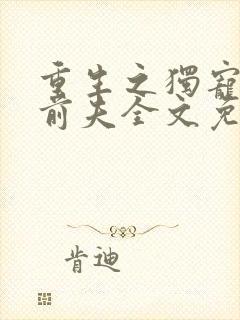 重生之獨寵
前夫全文免
肯迪